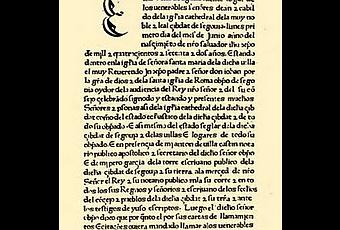 los venerables señores dean z cabil
do dela iglia cathedral dela muy no
ble z leal cibdat de segouia lunes pri
mero dia del mes de Junio anno del
nascimieto de nro saluador ihu xpo
de mill z quatroçientos z setenta z dos años. Estando
dantro enla iglia de señora santa maria dela dicha uilla
el muy Reuerendo Jn xpo padre z señor don iohan por
la gra de dios z dela santa iglia de Roma obpo de sego
uia oydor dela audiencia del Rey nro señor z del su cō
sejo celebrādo signodo y estando y presentes
Señores z psonas dela iglia cathedral dela dicha çib
dat como del estado eclesiastico dela dicha cibdat z de to
do su obpado. E asi mesmo del estado seglar dela dicha
çibdat de segouia z delas uillas E logares de todo su
obpado. En presencia de my anton de uilla castin nota
rio publico apostolico z secretario del dicho señor obpo
E de my pero garcia dela torre escriuano publico dela
dicha cibdat de segouia z su tierra ala merced de nro
Señor el Rey z su notario publico en la su corte z en to
dos los sus Regnos y señorios z escriuano delos fechos
del cōcejo z pueblos dela dicha cibdat z su tierra z ante
los testigos de yuso escriptos. Luego el dicho señor
obpo dixo que por quāto el por sus cartas de llamamien
tos Ecitações ouiera mandado llamar alos uenerables